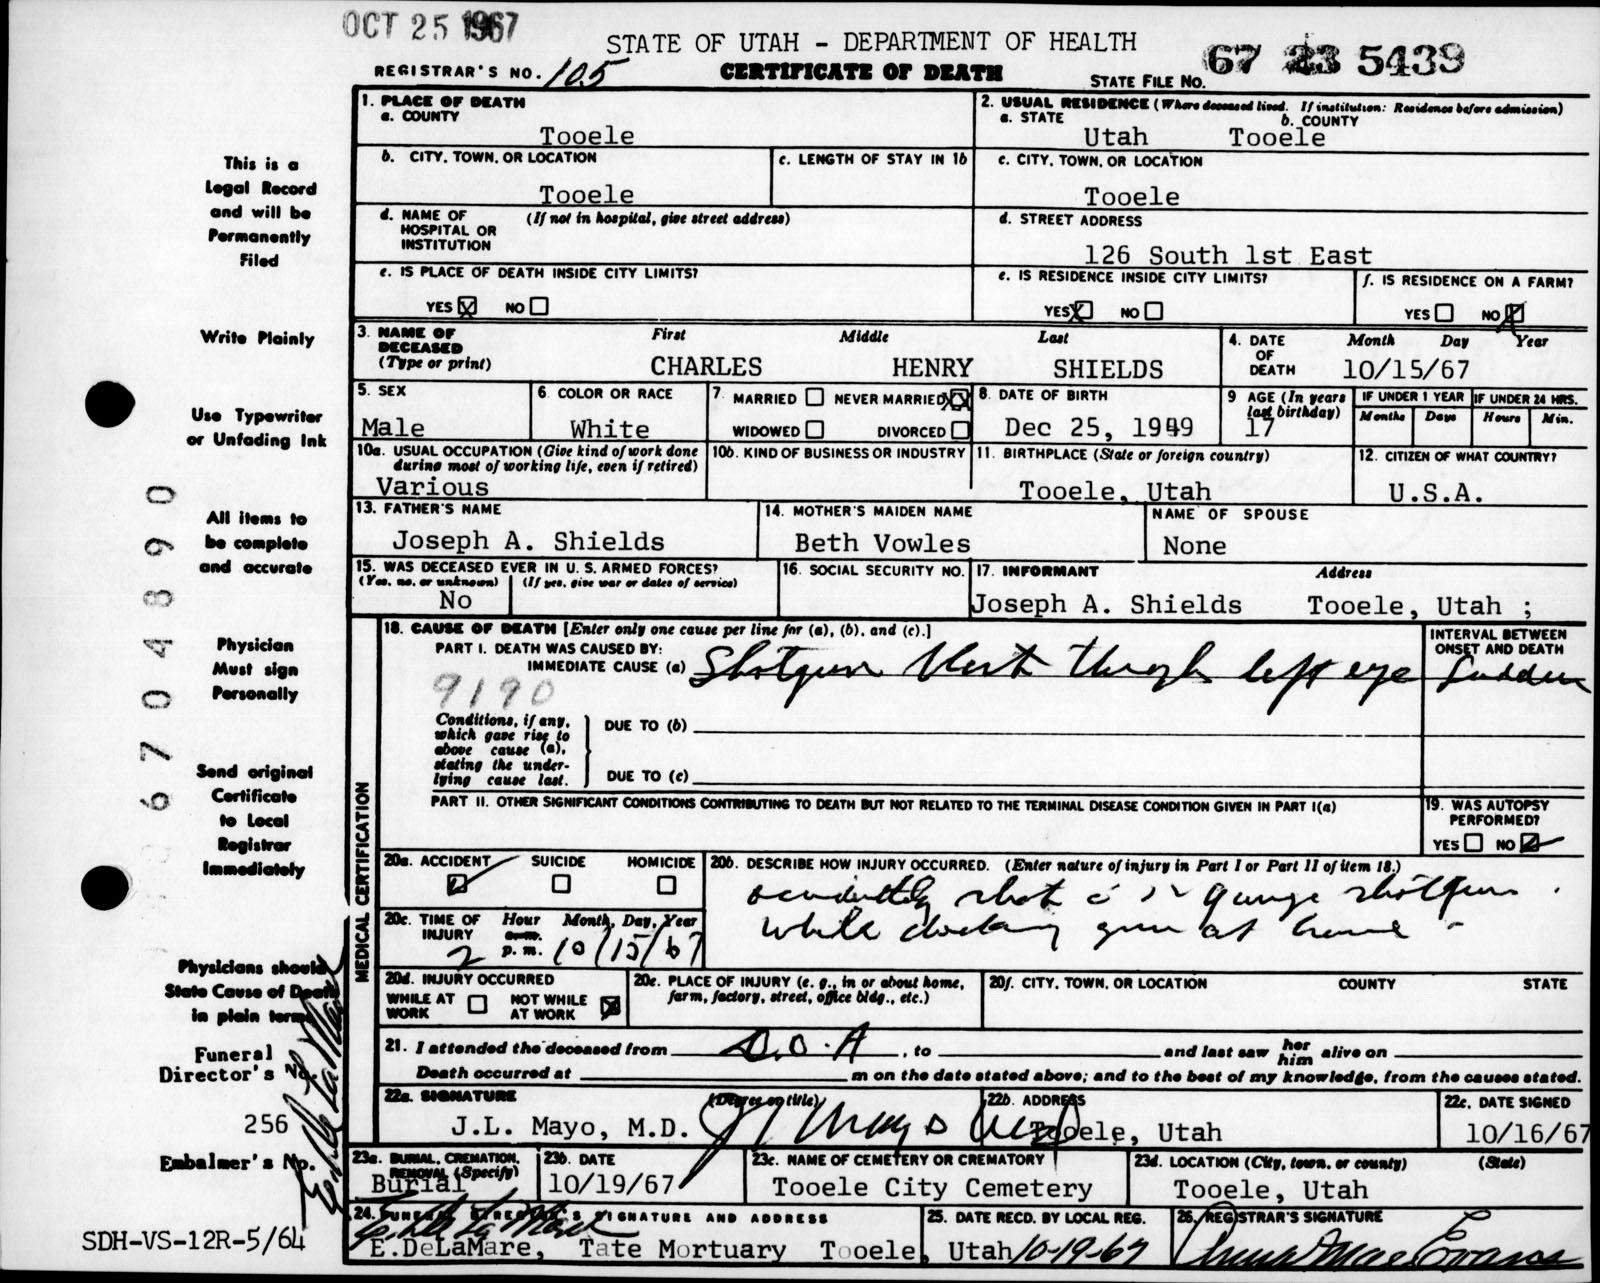 OCT 25 1967
STATE OF UTAH - DEPARTMENT OF HEALTH
REGISTRAR'S NO. 105
CERTIFICATE OF DEATH
STATE FILE NO. 67 23 5439
This is a
Legal Record
and will be
Permanently
Filed
Write Plainly
Use Typewriter
or Unfading Ink
All items to
be complete
and accurate
Physician
Must sign
Personally
Send original
Certificate
to Local
Registrar
Immediately
Physicians should
State Cause of Death
in plain terms
Funeral
Director's No.
256
Embalmer's No.
SDH-VS-12R-5/64
67 04890
1. PLACE OF DEATH
a. COUNTY
Tooele
2. USUAL RESIDENCE (Where deceased lived. If institution: Residence before admission)
a. STATE b. COUNTY
Utah Tooele
b. CITY, TOWN, OR LOCATION
Tooele
c. LENGTH OF STAY IN 1b
c. CITY, TOWN, OR LOCATION
Tooele
d. NAME OF HOSPITAL OR INSTITUTION (If not in hospital, give street address)
d. STREET ADDRESS
126 South 1st East
e. IS PLACE OF DEATH INSIDE CITY LIMITS?
YES X NO
e. IS RESIDENCE INSIDE CITY LIMITS?
YES X NO
f. IS RESIDENCE ON A FARM?
YES NO X
3. NAME OF DECEASED (Type or print)
First Middle Last
CHARLES HENRY SHIELDS
4. DATE OF DEATH Month Day Year
10/15/67
5. SEX
Male
6. COLOR OR RACE
White
7. MARRIED NEVER MARRIED XX
WIDOWED DIVORCED
8. DATE OF BIRTH
Dec 25, 1949
9 AGE (In years last birthday)
17
IF UNDER 1 YEAR IF UNDER 24 HRS.
Months Days Hours Min.
10a. USUAL OCCUPATION (Give kind of work done during most of working life, even if retired)
Various
10b. KIND OF BUSINESS OR INDUSTRY
11. BIRTHPLACE (State or foreign country)
Tooele, Utah
12. CITIZEN OF WHAT COUNTRY?
U.S.A.
13. FATHER'S NAME
Joseph A. Shields
14. MOTHER'S MAIDEN NAME
Beth Vowles
NAME OF SPOUSE
None
15. WAS DECEASED EVER IN U.S. ARMED FORCES?
(Yes, no, or unknown) (If yes, give war or dates of service)
No
16. SOCIAL SECURITY NO.
17. INFORMANT Address
Joseph A. Shields Tooele, Utah ;
MEDICAL CERTIFICATION
18. CAUSE OF DEATH [Enter only one cause per line for (a), (b), and (c).]
PART I. DEATH WAS CAUSED BY:
IMMEDIATE CAUSE (a) Shotgun blast through left eye
9190
INTERVAL BETWEEN ONSET AND DEATH
Sudden
Conditions, if any, which gave rise to above cause (a), stating the underlying cause last.
DUE TO (b)
DUE TO (c)
PART II. OTHER SIGNIFICANT CONDITIONS CONTRIBUTING TO DEATH BUT NOT RELATED TO THE TERMINAL DISEASE CONDITION GIVEN IN PART I(a)
19. WAS AUTOPSY PERFORMED?
YES NO
20a. ACCIDENT SUICIDE HOMICIDE
20b. DESCRIBE HOW INJURY OCCURRED. (Enter nature of injury in Part I or Part II of item 18.)
accidentally shot gauge shotgun
while gun at home
20c. TIME OF INJURY Hour Month, Day, Year
2 a.m. p.m. 10/15/67
20d. INJURY OCCURRED
WHILE AT WORK NOT WHILE AT WORK X
20e. PLACE OF INJURY (e. g., in or about home, farm, factory, street, office bldg., etc.)
20f. CITY, TOWN, OR LOCATION COUNTY STATE
21. I attended the deceased from D.O.A , to and last saw her him alive on
Death occurred at m on the date stated above; and to the best of my knowledge, from the causes stated.
22a. SIGNATURE (Degree or title)
J.L. Mayo, M.D.
22b. ADDRESS
Tooele, Utah
22c. DATE SIGNED
10/16/67
23a. BURIAL, CREMATION, REMOVAL (Specify)
Burial
23b. DATE
10/19/67
23c. NAME OF CEMETERY OR CREMATORY
Tooele City Cemetery
23d. LOCATION (City, town, or county) (State)
Tooele, Utah
24. FUNERAL DIRECTOR'S SIGNATURE AND ADDRESS
E.DeLaMare, Tate Mortuary Tooele, Utah
25. DATE RECD. BY LOCAL REG.
10-19-67
26. REGISTRAR'S SIGNATURE